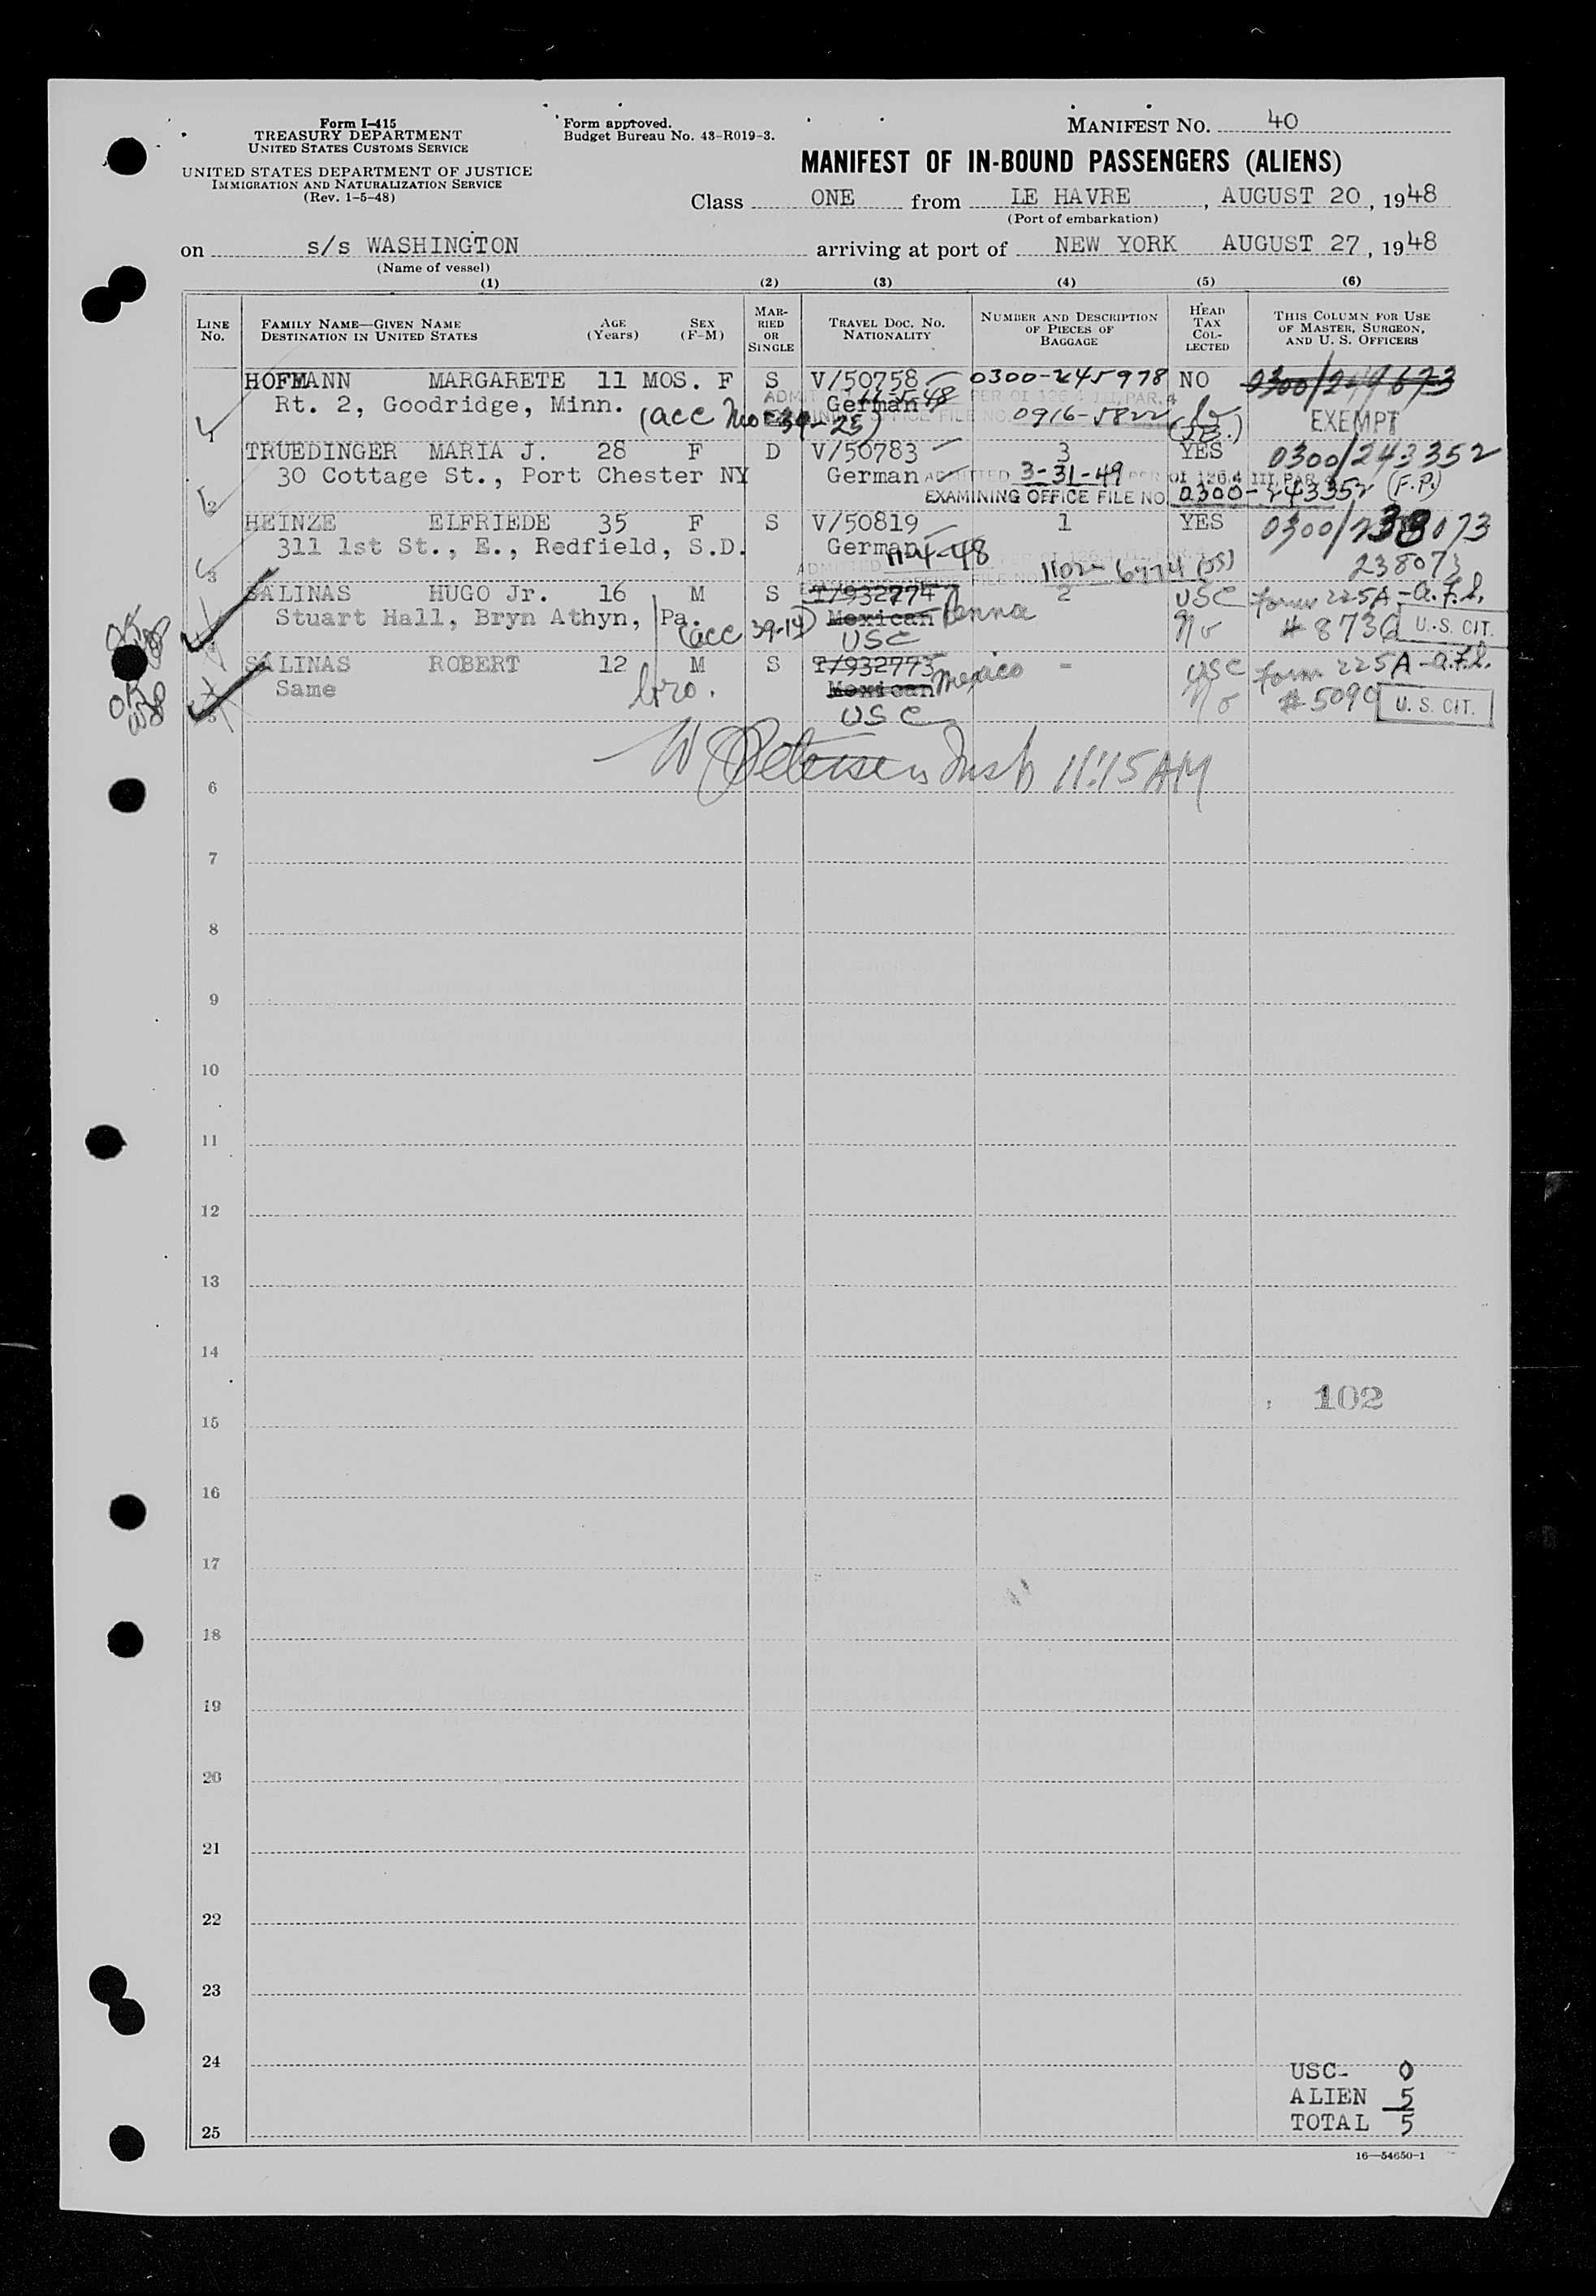 Form I-415
TREASURY DEPARTMENT
UNITED STATES CUSTOMS SERVICE
UNITED STATES DEPARTMENT OF JUSTICE
IMMIGRATION AND NATURALIZATION SERVICE
(Rev. 1-5-48)
Form approved.
Budget Bureau No. 43-R019-3.
MANIFEST NO. 40
MANIFEST OF IN-BOUND PASSENGERS (ALIENS)
Class ONE from LE HAVRE, AUGUST 20, 1948
(Port of embarkation)
on s/s WASHINGTON arriving at port of NEW YORK AUGUST 27, 1948
(Name of vessel)
(1) (2) (3) (4) (5) (6)
LINE No.
FAMILY NAME—GIVEN NAME
DESTINATION IN UNITED STATES
AGE (Years)
SEX (F-M)
MARRIED OR SINGLE
TRAVEL DOC. NO.
NATIONALITY
NUMBER AND DESCRIPTION OF PIECES OF BAGGAGE
HEAD TAX COLLECTED
THIS COLUMN FOR USE OF MASTER, SURGEON, AND U. S. OFFICERS
HOFMANN MARGARETE 11 MOS. F S V/50758 0300-245978 NO
ADMITTED 11-5-48 PER OI 126.4 III, PAR. 4
Rt. 2, Goodridge, Minn. German EXEMPT
1 (acc Mo 39-25) OFFICE FILE NO. 0916-5822
TRUEDINGER MARIA J. 28 F D V/50783 3 YES 0300/243352
30 Cottage St., Port Chester NY German ADMITTED 3-31-49 PER OI 126.4 III, PAR. 4
2 EXAMINING OFFICE FILE NO. 0300-243352 (F.P.)
HEINZE ELFRIEDE 35 F S V/50819 1 YES 0300/238073
311 1st St., E., Redfield, S.D. German
ADMITTED 11-4-48 PER OI 126.4 III, PAR. 4
3 FILE NO. 238073
SALINAS HUGO Jr. 16 M S T/932774 2 USC Form 225A-a.f.l.
Stuart Hall, Bryn Athyn, Pa. Mexican Penna No U.S. CIT.
4 (acc 39-14) USC
SALINAS ROBERT 12 M S T/932773 - USC Form 225A-a.f.l.
Same bro. Mexican Mexico No U. S. CIT.
5 USC
11:15 AM
6
7
8
9
10
11
12
13
14
102
15
16
17
18
19
20
21
22
23
24
USC- 0
ALIEN 5
TOTAL 5
25
16—54650-1